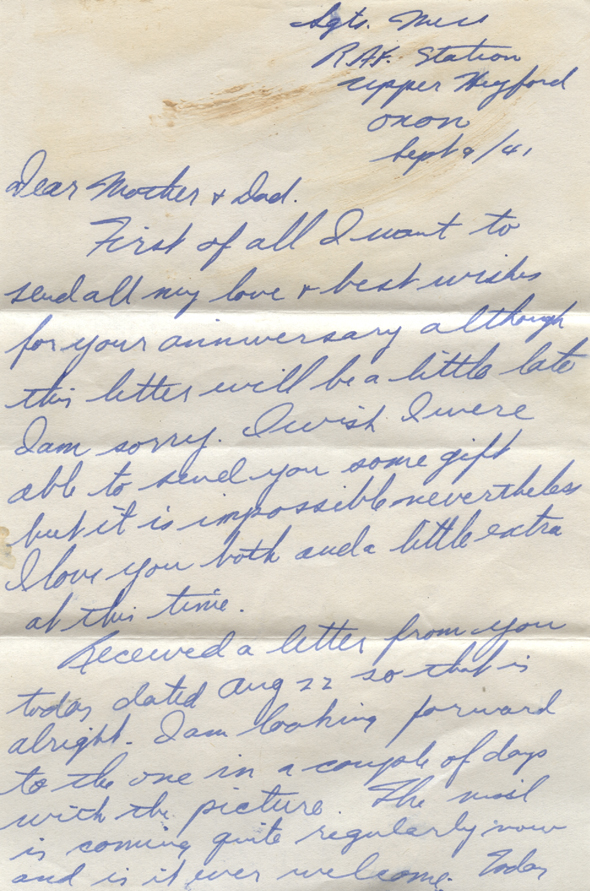 Sgts. Mess
R.A.F. Station
Upper Heyford
Oxon
Sept 9/41
Dear Mother & Dad.
First of all I want to
send all my love & best wishes
for your anniversary although
this letter will be a little late
I am sorry. I wish I were
able to send you some gift
but it is impossible nevertheless
I love you both and a little extra
at this time.
Received a letter from you
today dated Aug 22 so that is
alright. I am looking forward
to the one in a couple of days
with the picture. The mail
is coming quite regularly now
and is it ever welcome. Today